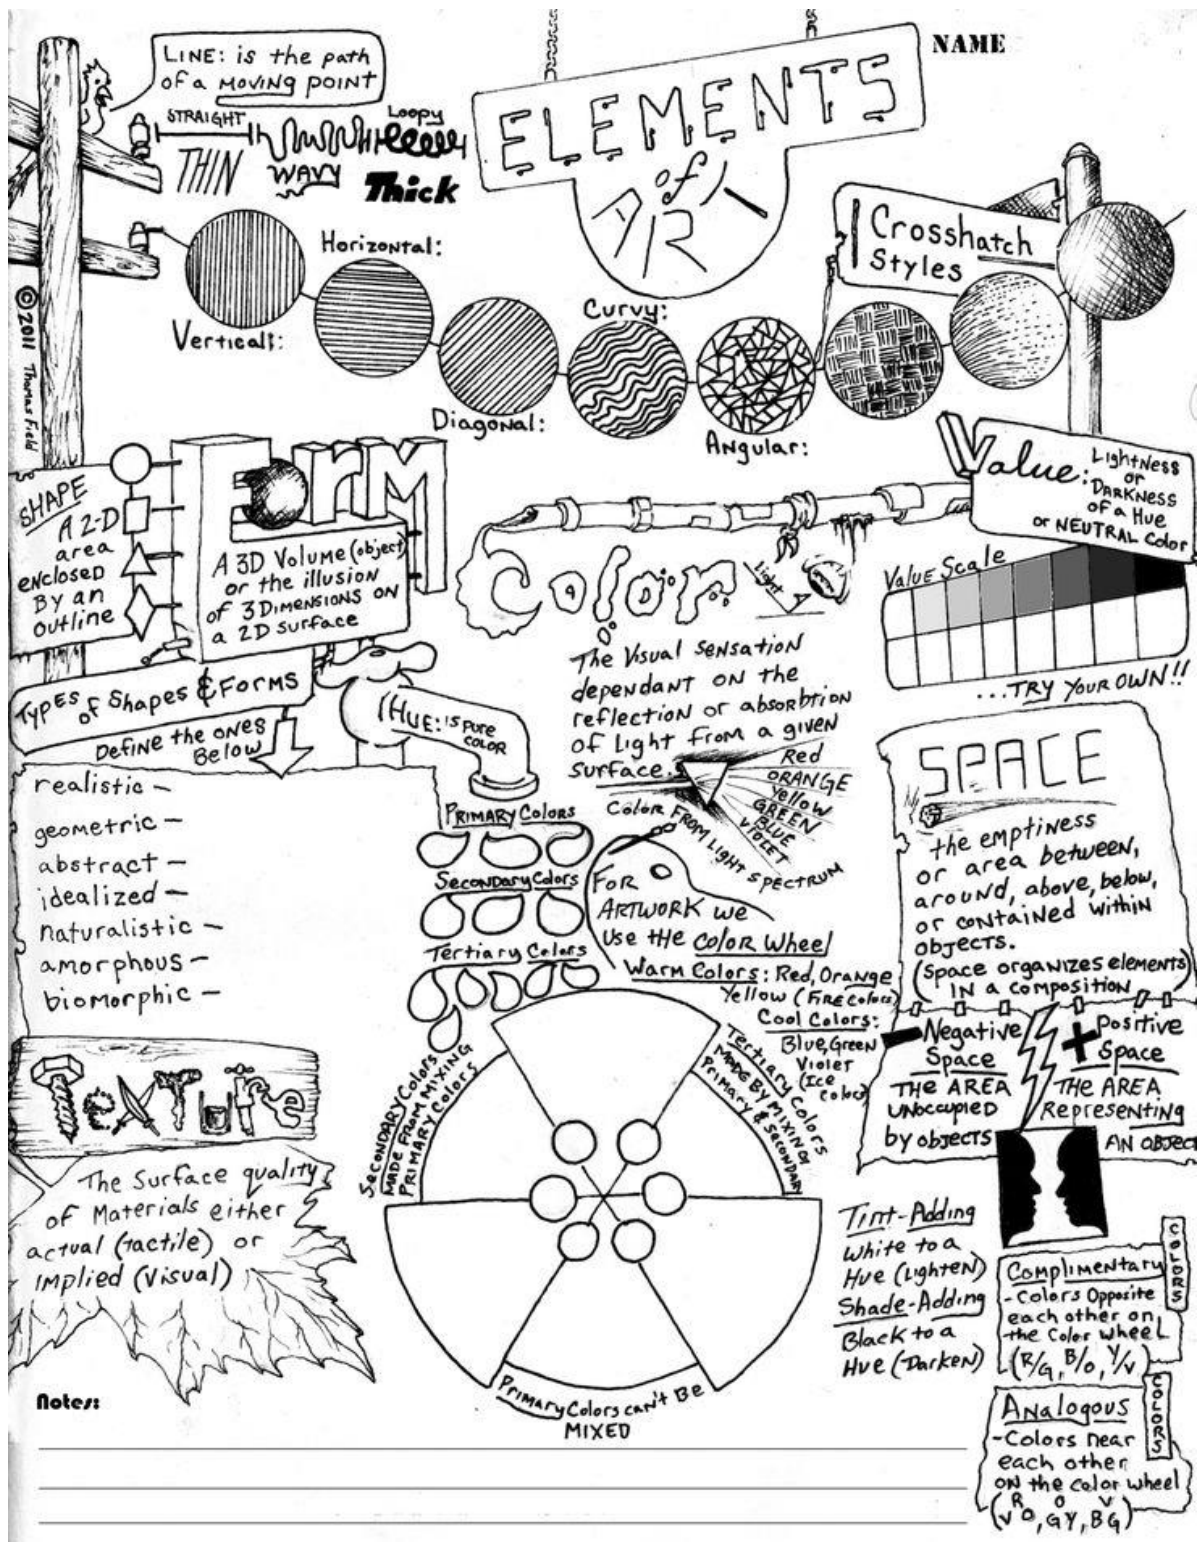 NAME
ELEMENTS
of
ART
LINE: is the path
of a MOVING POINT
STRAIGHT
Loopy
THIN
WAVY
Thick
Crosshatch
Styles
Horizontal:
Vertical:
Curvy:
Diagonal:
Angular:
©2011 Thomas Field
SHAPE
A 2-D
area
ENCLOSED
By an
outline
Form
A 3D Volume (object)
or the illusion
of 3 DIMENSIONS ON
a 2D surface
Value:
Lightness
or
DARKNESS
of a Hue
or NEUTRAL Color
Value Scale
...TRY YOUR OWN!!
Color:
Light
The Visual SENSATION
dependant on the
reflection or absorbtion
of Light from a given
surface.
Red
ORANGE
Yellow
GREEN
BLUE
VIOLET
COLOR FROM LIGHT SPECTRUM
TYPES of Shapes & FORMS
Define the ones
Below
realistic -
geometric -
abstract -
idealized -
naturalistic -
amorphous -
biomorphic -
HUE: is PURE
COLOR
PRIMARY COLORS
SECONDARY COLORS
Tertiary Colors
FOR
ARTWORK we
Use the COLOR Wheel
Warm Colors: Red, Orange
Yellow (FIRE colors)
Cool Colors:
Blue, Green
Violet
(Ice
colors)
SPACE
the emptiness
or area between,
around, above, below,
or contained within
objects.
(space organizes elements)
IN a composition
Negative
Space
THE AREA
UNOCCUPIED
by objects
+ Positive
Space
THE AREA
Representing
AN OBJECT
TexTure
The Surface quality
of Materials either
actual (tactile) or
implied (visual)
SECONDARY Colors
MADE FROM MIXING
PRIMARY COLORS
Tertary Colors
MADE BY MIXING
Primary & Secondary
PRIMARY Colors can't Be
MIXED
Tint-Adding
White to a
Hue (Lighten)
Shade-Adding
Black to a
Hue (Darken)
COLORS
Complimentary
- Colors Opposite
each other on
the Color wheel
(R/G, B/O, Y/V)
COLORS
Analogous
- Colors near
each other
ON the color wheel
Notes: